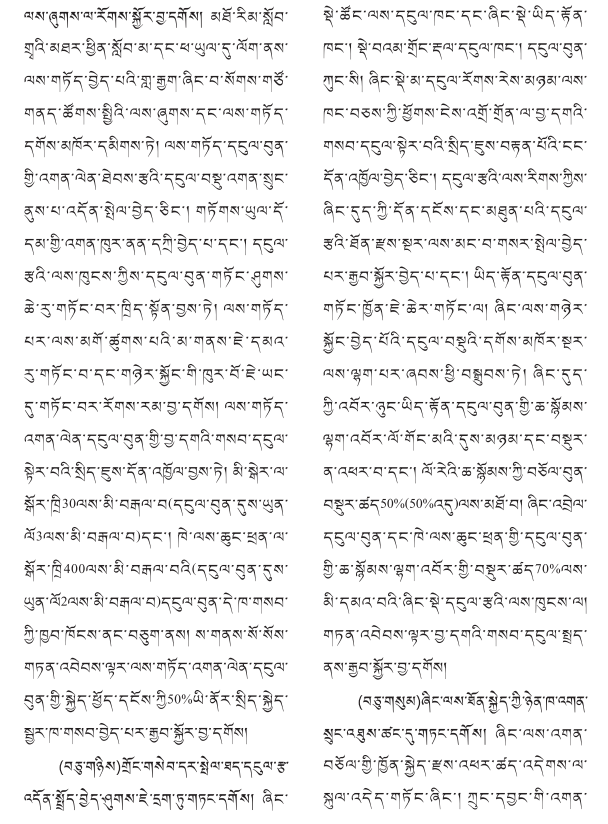 ལས་ཞུགས་ལ་རོགས་སྐྱོར་བྱ་དགོས། མཐོ་རིམ་སློབ་
གྲྭའི་མཐར་ཕྱིན་སློབ་མ་དང་ཕ་ཡུལ་དུ་ལོག་ནས་
ལས་གཏོད་བྱེད་པའི་གླ་རྒྱག་ཞིང་བ་སོགས་གཙོ་
གནད་ཚོགས་སྤྱིའི་ལས་ཞུགས་དང་ལས་གཏོད་
དགོས་མཁོར་དམིགས་ཏེ། ལས་གཏོད་དངུལ་བུན་
གྱི་འགན་ལེན་ཐེབས་རྩའི་དངུལ་བསྡུ་འགན་སྲུང་
ནུས་པ་འདོན་སྤེལ་བྱེད་ཅིང་། གཏོགས་ཡུལ་དོ་
དམ་གྱི་འགན་ཁུར་ནན་དཀྲི་བྱེད་པ་དང་། དངུལ་
རྩའི་ལས་ཁུངས་ཀྱིས་དངུལ་བུན་གཏོང་ཤུགས་
ཆེ་རུ་གཏོང་བར་ཁྲིད་སྟོན་བྱས་ཏེ། ལས་གཏོད་
པར་ལས་མགོ་ཚུགས་པའི་མ་གནས་ཇེ་དམའ་
རུ་གཏོང་བ་དང་གཉེར་སྐྱོང་གི་ཁུར་པོ་ཇེ་ཡང་
དུ་གཏོང་བར་རོགས་རམ་བྱ་དགོས། ལས་གཏོད་
འགན་ལེན་དངུལ་བུན་གྱི་བྱ་དགའི་གསབ་དངུལ་
སྟེར་བའི་སྲིད་ཇུས་དོན་འཁྱོལ་བྱས་ཏེ། མི་སྒེར་ལ་
སྒོར་ཁྲི30ལས་མི་བརྒལ་བ(དངུལ་བུན་དུས་ཡུན་
ལོ3ལས་མི་བརྒལ་བ)དང་། ཁེ་ལས་ཆུང་ཕྲན་ལ་
སྒོར་ཁྲི400ལས་མི་བརྒལ་བའི(དངུལ་བུན་དུས་
ཡུན་ལོ2ལས་མི་བརྒལ་བ)དངུལ་བུན་དེ་ཁ་གསབ་
ཀྱི་ཁྱབ་ཁོངས་ནང་བཅུག་ནས། ས་གནས་སོ་སོས་
གཏན་འབེབས་ལྟར་ལས་གཏོད་འགན་ལེན་དངུལ་
བུན་གྱི་སྐྱེད་ཕྱོད་དངོས་ཀྱི50%ཡི་ནོར་སྲིད་སྐྱེད་
སྦྱར་ཁ་གསབ་བྱེད་པར་རྒྱབ་སྐྱོར་བྱ་དགོས།
(བཅུ་གཉིས)གྲོང་གསེབ་དར་སྤེལ་ཐད་དངུལ་རྩ་
འདོན་སྤྲོད་བྱེད་ཤུགས་ཇེ་དྲག་ཏུ་གཏང་དགོས། ཞིང་
སྡེ་ཚོང་ལས་དངུལ་ཁང་དང་ཞིང་སྡེ་ཡིད་རྟོན་
ཁང་། སྡེ་བའམ་གྲོང་རྡལ་དངུལ་ཁང་། དངུལ་བུན་
ཀུང་སི། ཞིང་སྡེ་མ་དངུལ་རོགས་རེས་མཉམ་ལས་
ཁང་བཅས་ཀྱི་ཕྱོགས་ངེས་འགྲོ་གྲོན་ལ་བྱ་དགའི་
གསབ་དངུལ་སྟེར་བའི་སྲིད་ཇུས་བརྟན་པོའི་ངང་
དོན་འཁྱོལ་བྱེད་ཅིང་། དངུལ་རྩའི་ལས་རིགས་ཀྱིས་
ཞིང་དུད་ཀྱི་དོན་དངོས་དང་མཐུན་པའི་དངུལ་
རྩའི་ཐོན་རྫས་སྔར་ལས་མང་བ་གསར་སྤེལ་བྱེད་
པར་རྒྱབ་སྐྱོར་བྱེད་པ་དང་། ཡིད་རྟོན་དངུལ་བུན་
གཏོང་ཁྱོན་ཇེ་ཆེར་གཏོང་ལ། ཞིང་ལས་གཉེར་
སྐྱོང་བྱེད་པོའི་དངུལ་བསྡུའི་དགོས་མཁོར་སྔར་
ལས་ལྷག་པར་ཞབས་ཕྱི་བསྒྲུབས་ཏེ། ཞིང་དུད་
ཀྱི་འབོར་ཉུང་ཡིད་རྟོན་དངུལ་བུན་གྱི་ཆ་སྙོམས་
ལྷག་འབོར་ལོ་གོང་མའི་དུས་མཉམ་དང་བསྡུར་
ན་འཕར་བ་དང་། ལོ་རེའི་ཆ་སྙོམས་ཀྱི་བཅོལ་བུན་
བསྡུར་ཚད50%(50%འདུ)ལས་མཐོ་བ། ཞིང་འབྲེལ་
དངུལ་བུན་དང་ཁེ་ལས་ཆུང་ཕྲན་གྱི་དངུལ་བུན་
གྱི་ཆ་སྙོམས་ལྷག་འབོར་གྱི་བསྡུར་ཚད70%ལས་
མི་དམའ་བའི་ཞིང་སྡེ་དངུལ་རྩའི་ལས་ཁུངས་ལ།
གཏན་འབེབས་ལྟར་བྱ་དགའི་གསབ་དངུལ་སྤྲད་
ནས་རྒྱབ་སྐྱོར་བྱ་དགོས།
(བཅུ་གསུམ)ཞིང་ལས་ཐོན་སྐྱེད་ཀྱི་ཉེན་ཁ་འགན་
སྲུང་འཐུས་ཚང་དུ་གཏང་དགོས། ཞིང་ལས་འགན་
བཅོལ་གྱི་ཁྱོན་སྐྱེད་རྫས་འཕར་ཚད་འདེགས་ལ་
སྐུལ་འདེད་གཏོང་ཞིང་། ཀྲུང་དབྱང་གི་འགན་